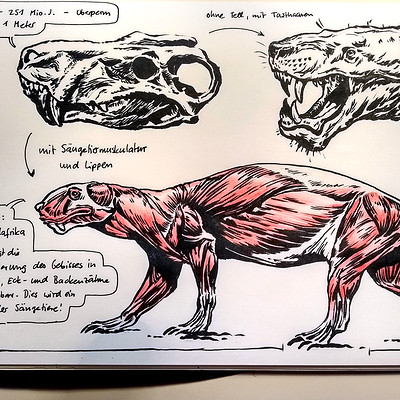 - 251 Mio.J. - Oberperm
1 Meter
ohne Fell, mit Tasthaaren
mit Säugetiermuskulatur
und Lippen
:
afrika
st die
erung des Gebisses in
, Eck- und Backenzähne
bar. Dies wird ein
der Säugetiere!